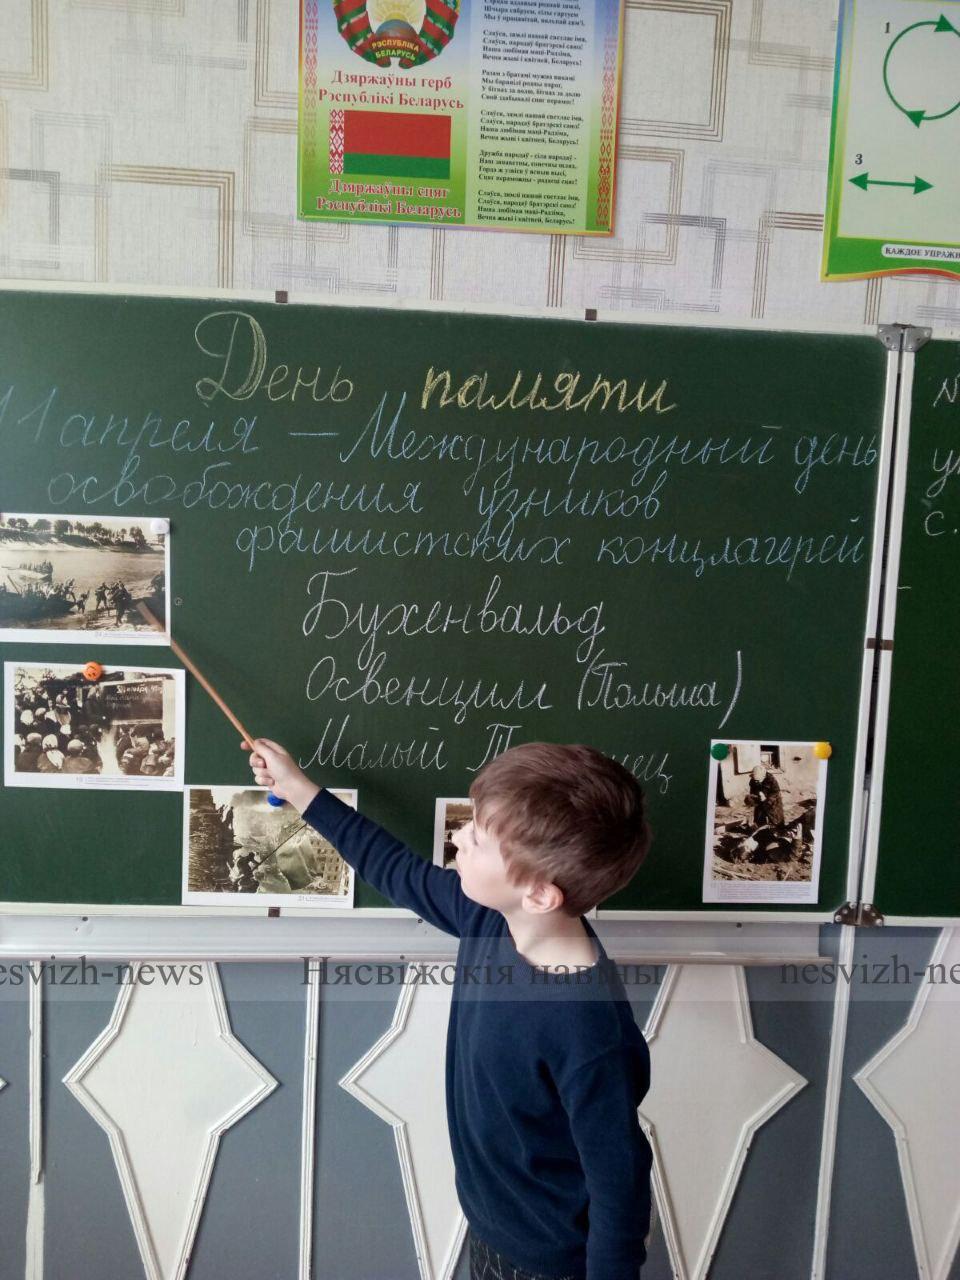 РЭСПУБЛІКА
БЕЛАРУСЬ
Дзяржаўны герб
Рэспублікі Беларусь
Дзяржаўны сцяг
Рэспублікі Беларусь
Мы ў працавітай, вольнай сям'і.
Слаўся, зямлі нашай светлае імя,
Слаўся, народаў братэрскі саюз!
Наша любімая маці-Радзіма,
Вечна жыві і квітней, Беларусь!
Разам з братамі мужна вякамі
Мы баранілі родны парог,
У бітвах за волю, бітвах за долю
Свой здабывалі сцяг перамог!
Слаўся, зямлі нашай светлае імя,
Слаўся, народаў братэрскі саюз!
Наша любімая маці-Радзіма,
Вечна жыві і квітней, Беларусь!
Дружба народаў - сіла народаў -
Наш запаветны, сонечны шлях.
Горда ж узвіся ў ясныя высі,
Сцяг пераможны - радасці сцяг!
Слаўся, зямлі нашай светлае імя,
Слаўся, народаў братэрскі саюз!
Наша любімая маці-Радзіма,
Вечна жыві і квітней, Беларусь!
1
3
КАЖДОЕ
День памяти
11 апреля — Международный день
освобождения узников
фашистских концлагерей
Бухенвальд
Освенцим (Польша)
Малый
nesvizh-news Нясвіжскія навіны